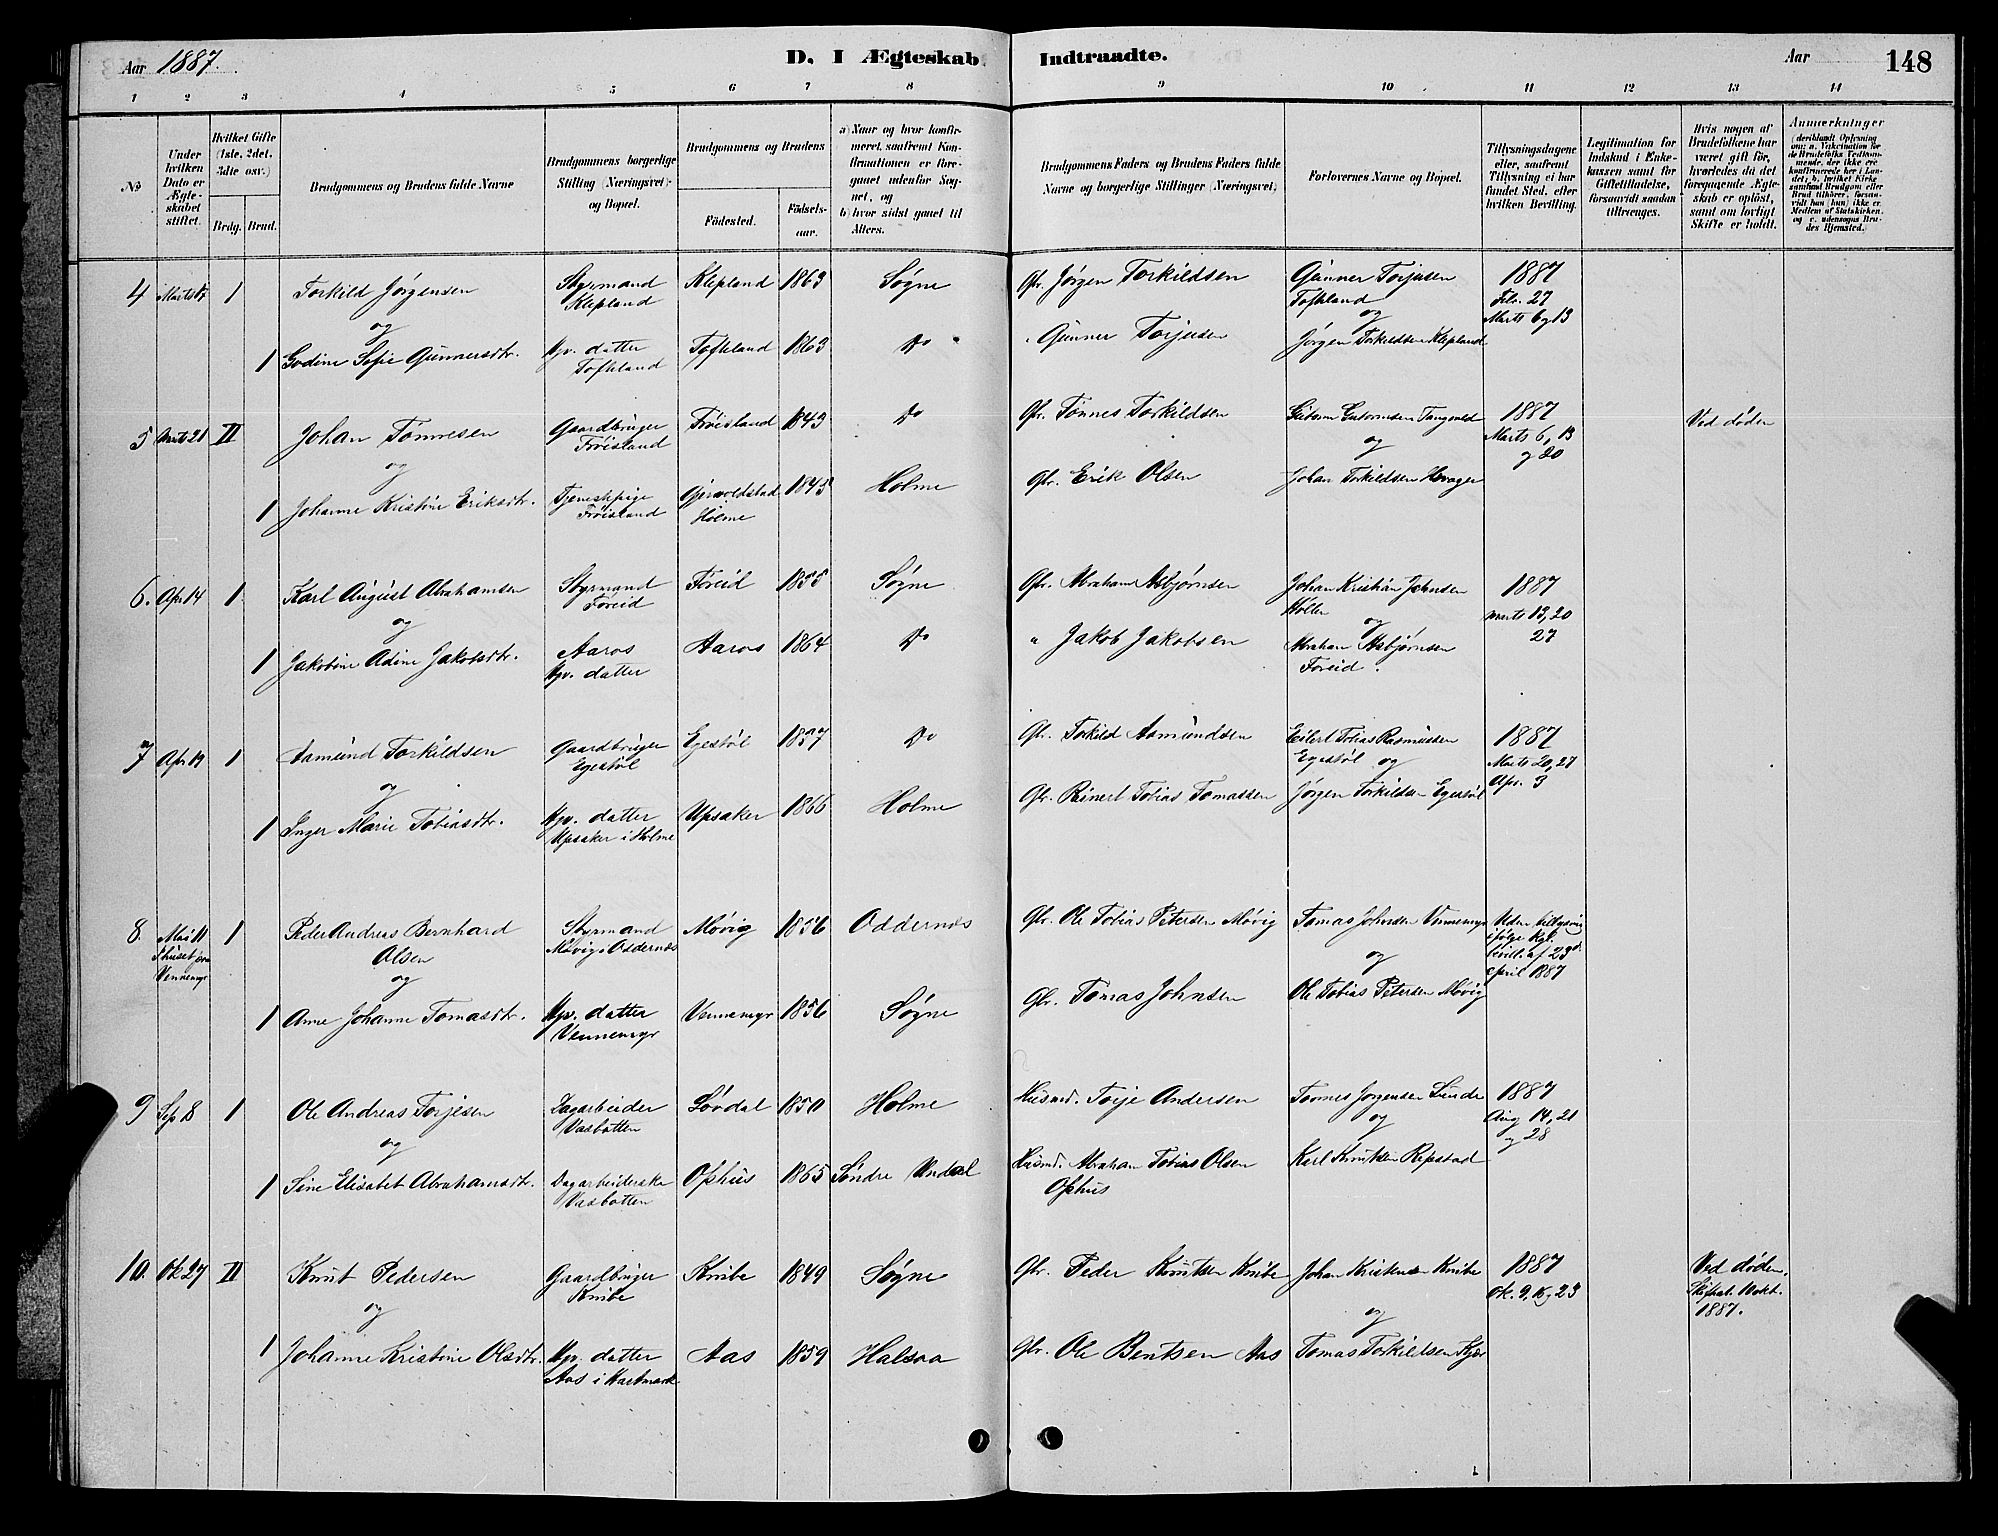 Aar 1887.
D. I Ægteskab Indtraadte.
Aar
148
1 2 3 4 5 6 7 8 9 10 11 12 13 14
No
Under hvilken Dato er Ægteskabet stiftet.
Hvilket Gifte (1ste, 2det, 3dte osv.)
Brdg. Brud.
Brudgommens og Brudens fulde Navne
Brudgommens borgerlige Stilling (Næringsvei) og Bopæl.
Brudgommens og Brudens
Fødested.
Fødselsaar.
a) Naar og hvor konfirmeret, saafremt Konfirmationen er foregaaet udenfor Sognet, og
b) hvor sidst gaaet til Alters.
Brudgommens Faders og Brudens Faders fulde Navne og borgerlige Stillinger (Næringsvei).
Forlovernes Navne og Bopæl.
Tillysningsdagene eller, saafremt Tillysning ei har fundet Sted, efter hvilken Bevilling.
Legitimation for Indskud i Enkekassen samt for Giftetilladelse, forsaavidt saadan tiltrænges.
Hvis nogen af Brudefolkene har været gift før, hvorledes da det foregaaende Ægteskab er opløst, samt om lovligt Skifte er holdt.
Anmærkninger
4 Marts 1 Torkild Jørgensen Styrmand Klepland Klepland 1863 Søgne Gbr. Jørgen Torkildsen Gunner Torjusen Tofteland 1887 Febr. 27 Marts 6 og 13
og og
1 Godine Sofie Gunnersdtr. Gjv. datter Tofteland Tofteland 1863 Do " Gunner Torjusen Jørgen Torkildsen Klepland
5 Marts 21 II Johan Tønnesen Gaardbruger Frøisland Frøisland 1843 Do Gbr. Tønnes Torkildsen Guttorm Guttormsen Tangvald 1887 Marts 6, 13 og 20 Ved døden
og og
1 Johanne Kristine Eriksdtr. Tjenestepige Frøisland Holme 1845 Holme Gbr. Erik Olsen Johan Torkildsen
6. Apr. 14 1 Karl August Abrahamsen Styrmand Toreid Toreid 1855 Søgne Gbr. Abraham Asbjørnsen Johan Kristian Johnsen Høllen 1887 Marts 13, 20 27
og og
1 Jakobine Adine Jakobsdtr. Aaros Gjv. datter Aaros 1864 Do " Jakob Jakobsen Abraham Asbjørnsen Toreid.
7 Apr. 1 Aamund Torkildsen Gaardbruger Egestøl Egestøl 1857 Do Gbr. Torkild Aamundsen Eilert Tobias Rasmussen Egestøl 1887 Marts 20, 27 Apr. 3
og og
1 Inger Marie Tobiasdtr. Gjv. datter Upsaker i Holme Upsaker 1866 Holme Gbr. Reinert Tobias Tomassen Jørgen Torkildsen Egestøl
8. Mai 11 i huset paa Vennemyr 1 Peder Andreas Bernhard Olsen Styrmand Møvig i Oddernæs Møvig 1856 Oddernæs Gbr. Ole Tobias Petersen Møvig Tomas Johnsen Vennemyr Uden tillysning ifølge Kgl. bevill. af 23d April 1887
og og
1 Anne Johanne Tomasdtr. Gjv. datter Vennemyr Vennemyr 1856 Søgne Gbr. Tomas Johnsen Ole Tobias Petersen Møvig
9 Sep. 8 1 Ole Andreas Torjesen Dagarbeider Vasbotten Søvdal 1850 Holme Husmd. Torje Andersen Tønnes Jørgensen Lunde 1887 Aug 14, 21 og 28
og og
1 Sine Elisabet Abrahamsdtr. Dagarbeiderske Vasbotten Ophus 1865 Søndre Undal Husmd. Abraham Tobias Olsen Ophus Karl Knutsen Repstad
10. Ok. 27 II Knut Pedersen Gaardbruger Knibe Knibe 1849 Søgne Gbr. Peder Knutsen Knibe Johan Kristensen Knibe 1887 Ok. 9, 16 og 23 Ved døden. Skifteat. 10 okt. 1887.
og og
1 Johanne Kristine Olsdtr. Gjv. datter Aas i Hartmark Aas 1859 Halsaa Gbr. Ole Bentsen Aas Tomas Torkildsen